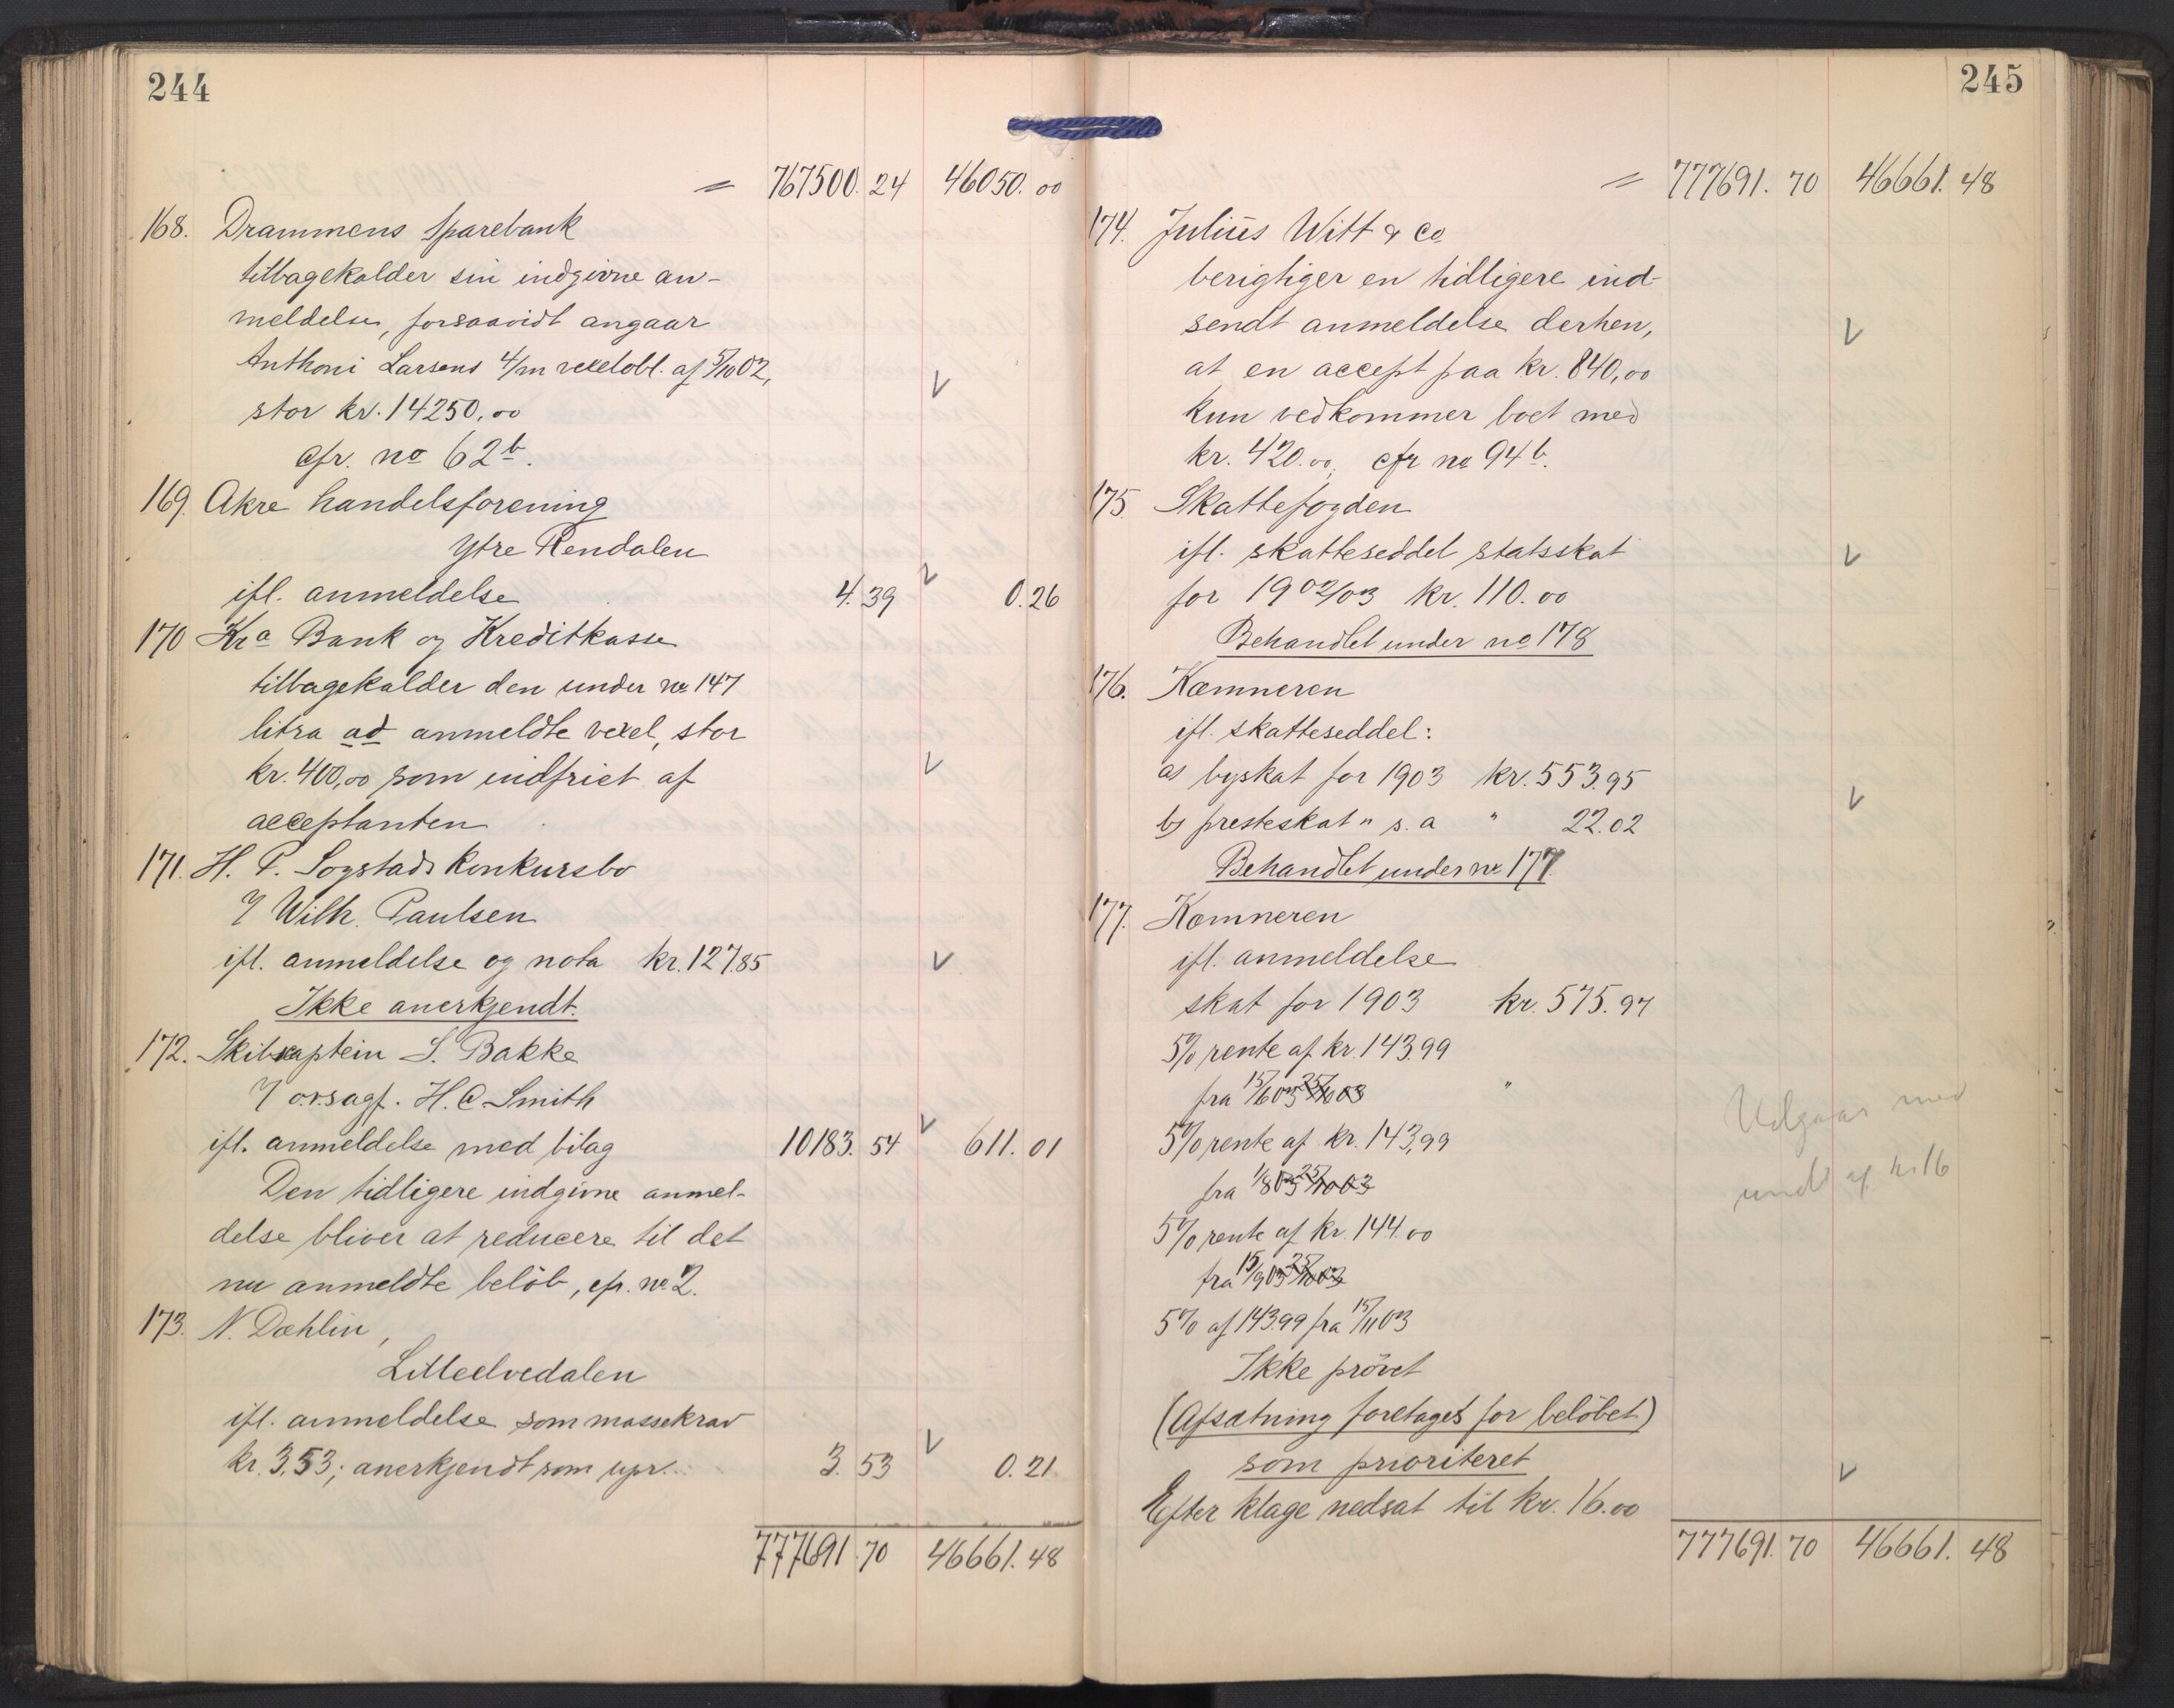 244
= 767500. 24 46050. 00
168. Drammens Sparebank
tilbagekalder sin indgivne an-
meldelse, forsaavidt angaar
Anthoni Larsens 4/m vexelobl. af 5/10 02,
stor kr. 14250,00
cfr. no 62b.
169. Akre handelsforening
Ytre Rendalen
ifl. anmeldelse 4. 39 0. 26
170 Kra Bank og Kreditkasse
tilbagekalder den under no 147
litra ad anmeldte vexel, stor
kr. 400,00 som indfriet af
acceptanten
171. H. P. Sogstads konkursbo
v/ Wilh. Paulsen
ifl. anmeldelse og nota kr. 127.85
Ikke anerkjendt.
172. Skibskaptein S. Bakke
v/ o.r.sagf. H. C Smith
ifl. anmeldelse med bilag 10183. 54 611. 01
Den tidligere indgivne anmel-
delse bliver at reducere til det
nu anmeldte beløb, cfr. no 2.
173. N. Dæhlin,
Lilleelvedalen
ifl. anmeldelse som massekrav
kr. 3,53; anerkjendt som upr. 3. 53 0. 21
777691 70 46661. 48
245
= 777691. 70 46661. 48
174. Julius Witt & Co
berigtiger en tidligere ind-
sendt anmeldelse derhen,
at en accept paa kr. 840,00
kun vedkommer boet med
kr. 420.00, cfr no 94b.
175. Skattefogden
ifl. skatteseddel statsskat
for 1902/03 kr. 110.00
Behandlet under no 178
176. Kæmneren
ifl. skatteseddel:
a) byskat for 1903 kr. 553.95
b) presteskat " s. a " 22.02
Behandlet under no 177
177. Kæmneren
ifl. anmeldelse
skat for 1903 kr. 575.97
5% rente af kr. 143.99
fra 15/6 03 25/10 03 "
5% rente af kr. 143,99
fra 1/8 03 25/10 03
5% rente af kr. 144.00
fra 15/9 03 25/10 03
5% af 143.99 fra 15/11 03
Ikke prøvet
(Afsætning foretaget for beløbet)
som prioriteret
Efter klage nedsat til kr. 16.00
Udgaar med
undt af kr. 16
777691. 70 46661. 48